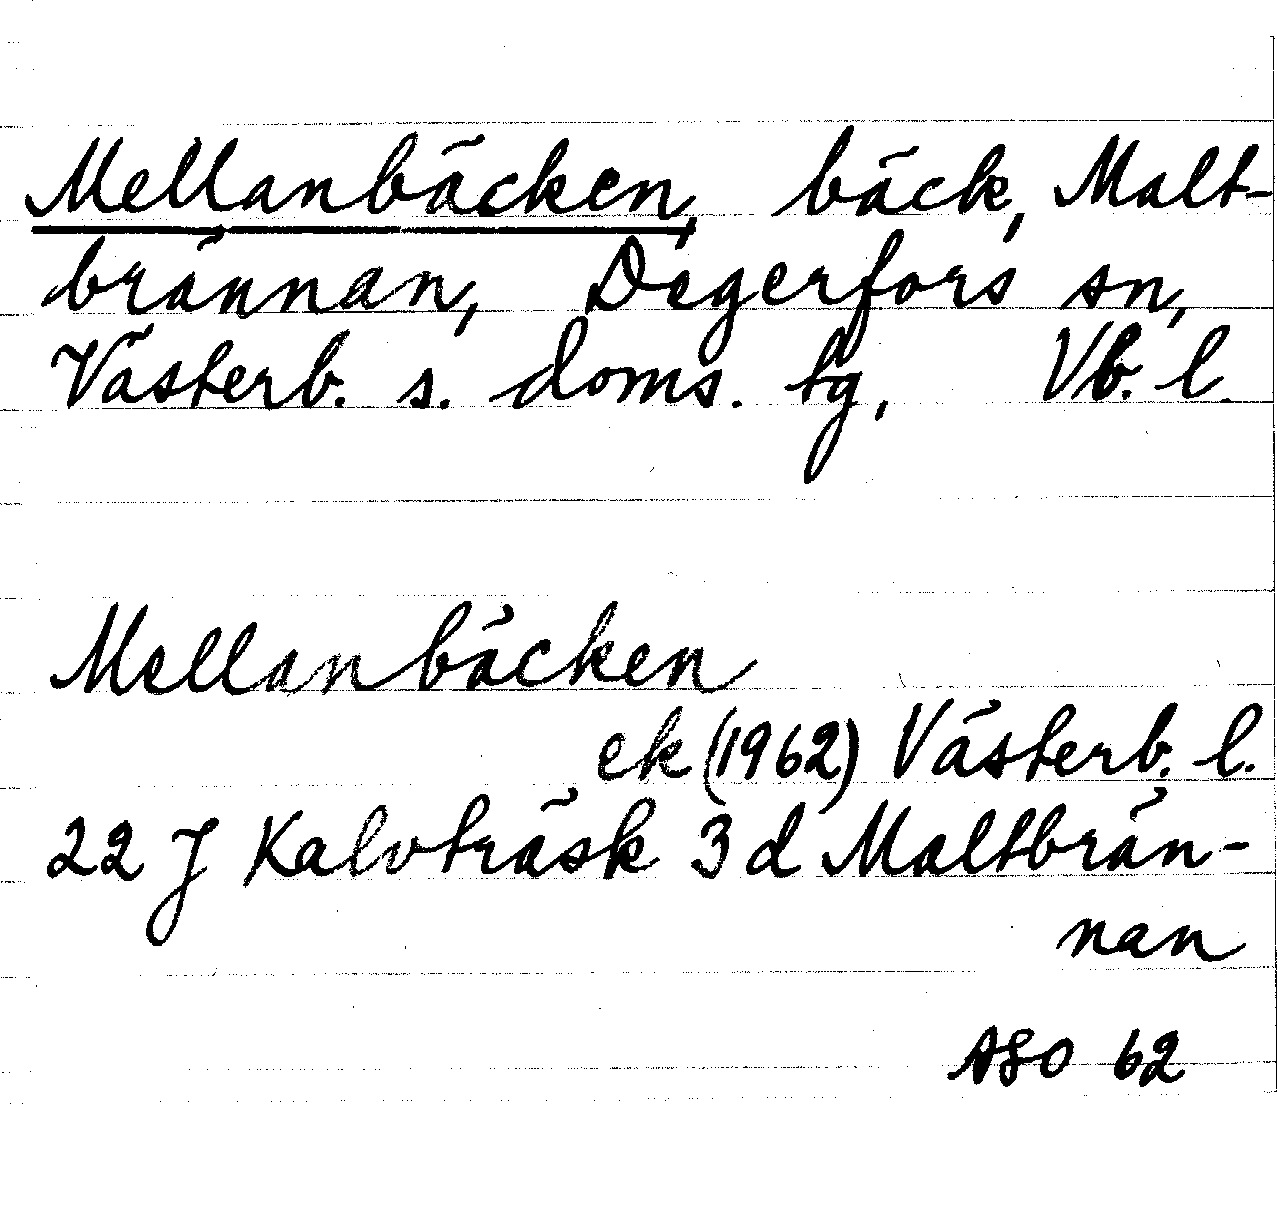 Mellanbäcken, bäck, Malt-
brännan, Degerfors sn,
Västerb. s. doms. tg, Vb. l.
Mellanbäcken
ek (1962) Västerb. l.
22 J Kalvträsk 3 d Maltbrän-
nan
ASO 62